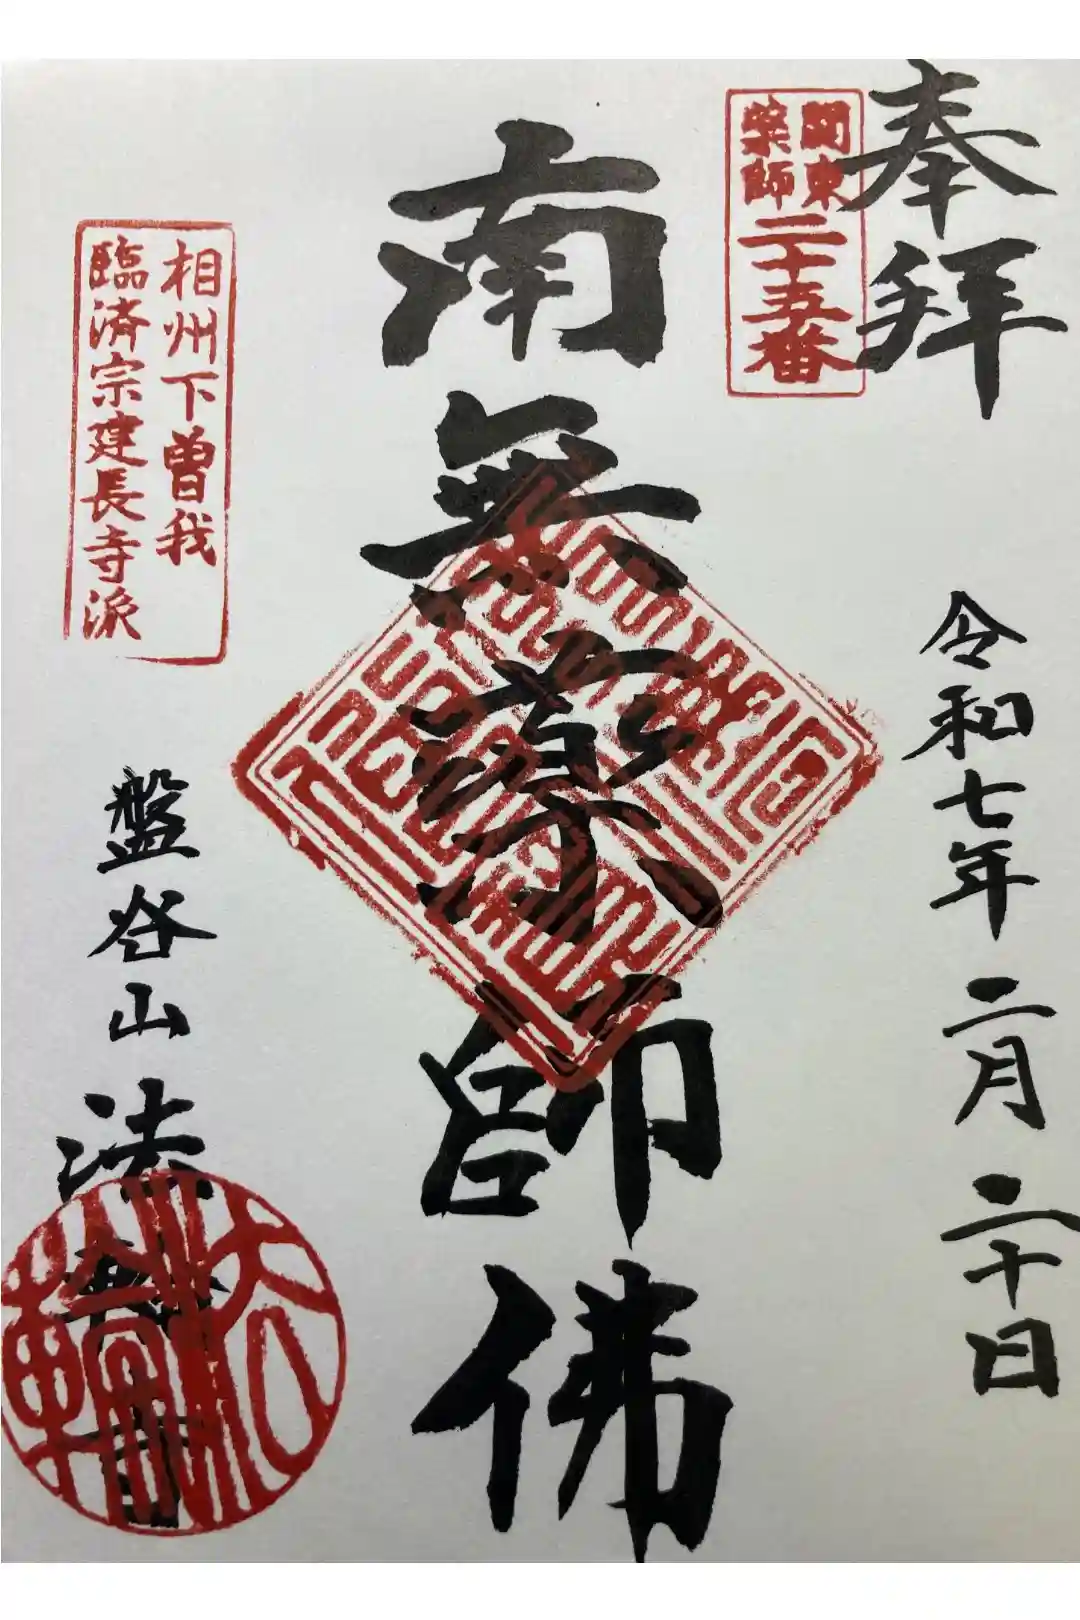 奉拝
関東
薬師
二十五番
令和七年二月二十日
南無薬師佛
相州下曽我
臨済宗建長寺派
盤谷山法